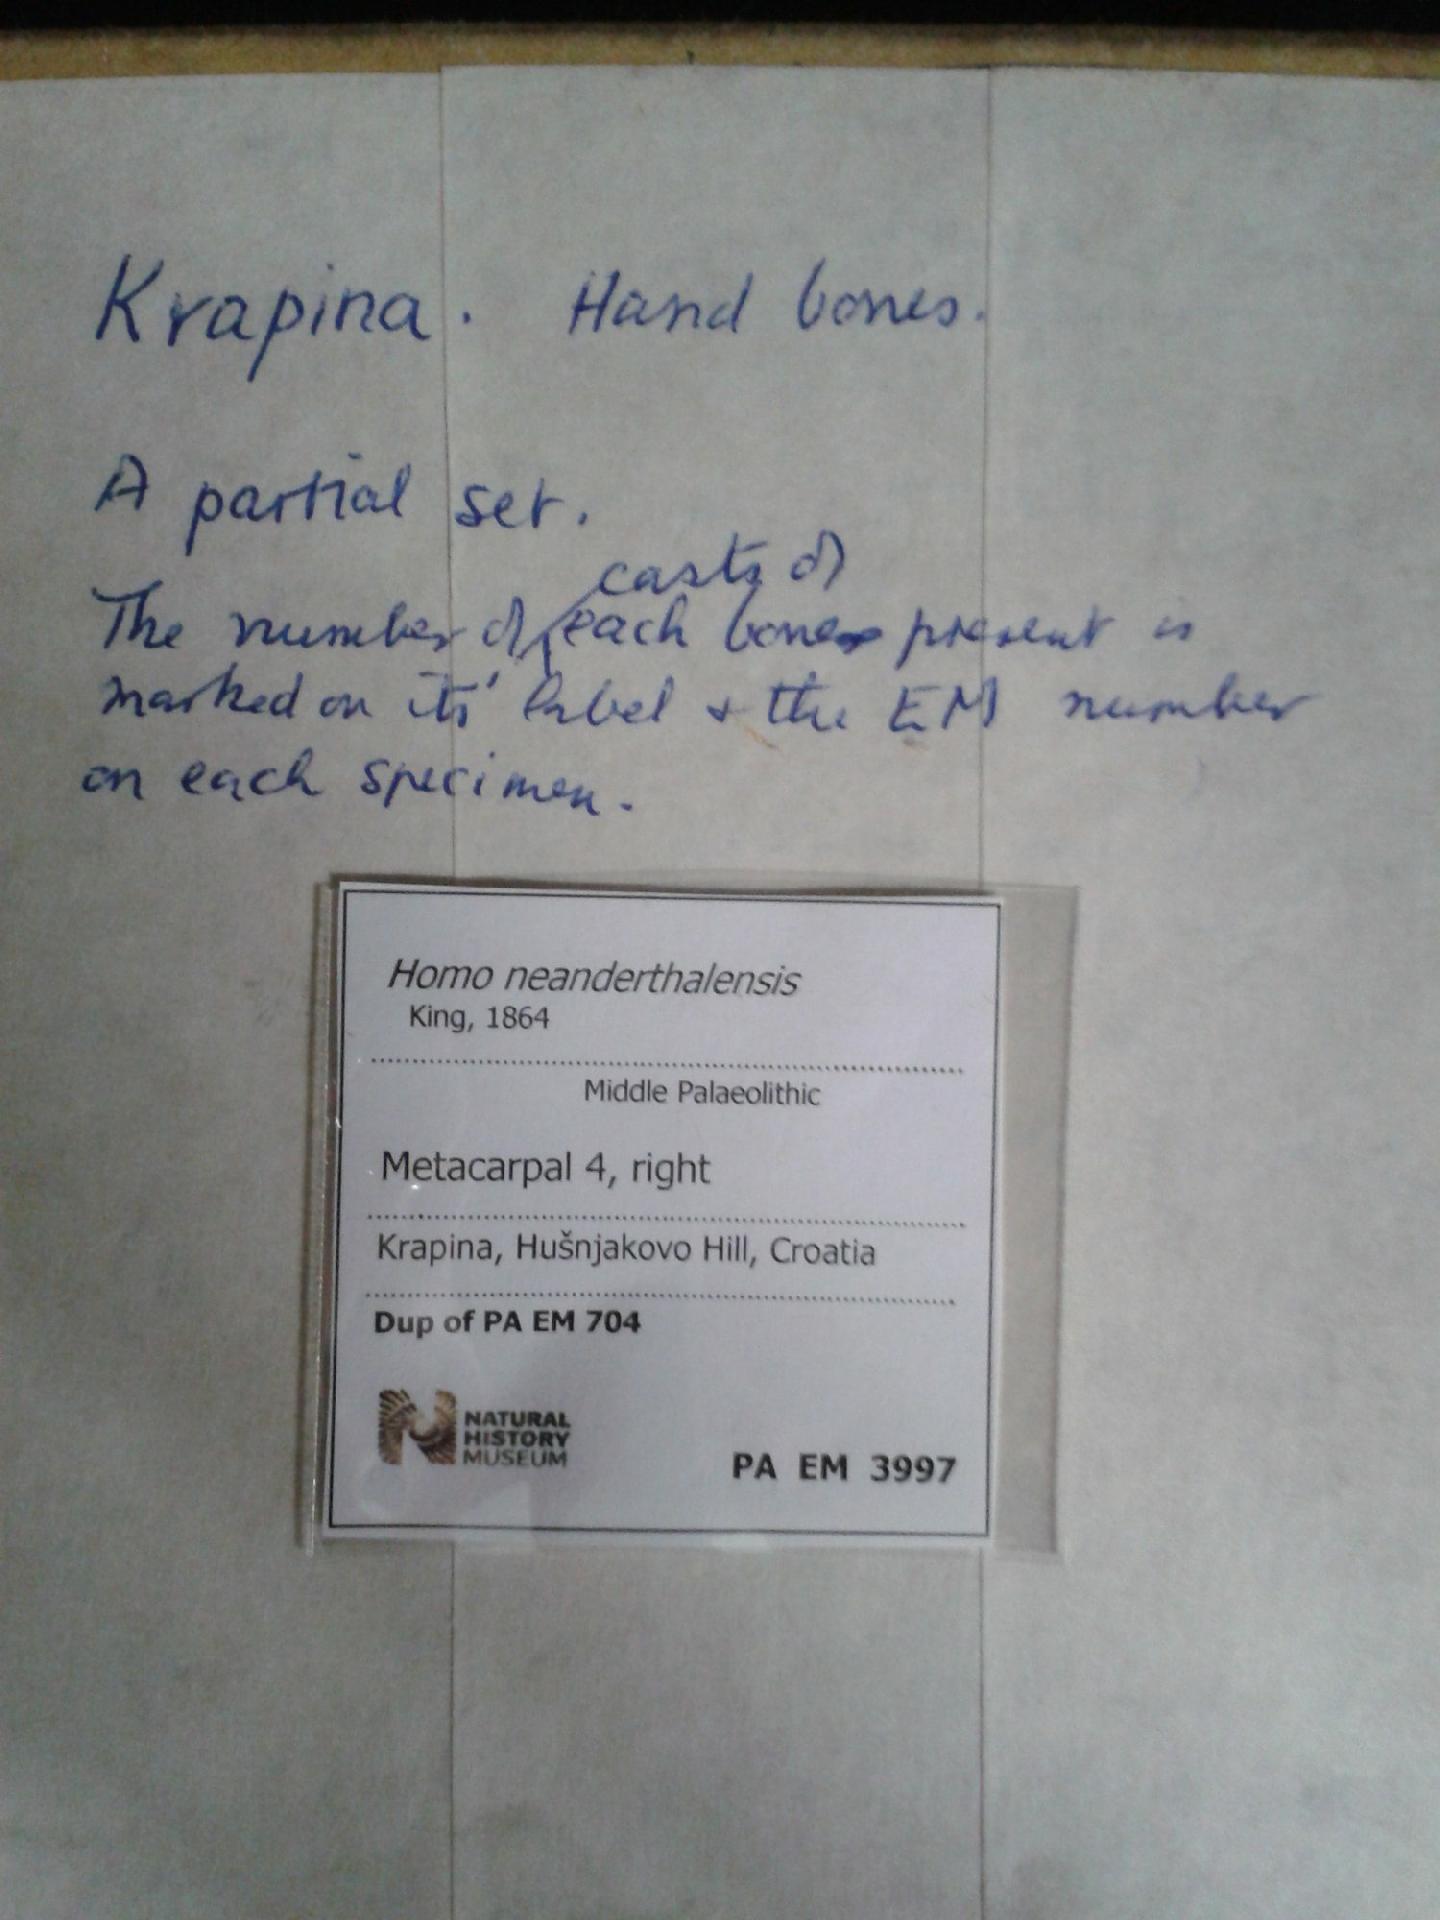 Krapina. Hand bones.
A partial set.
casts of
The number of each bone present is
marked on its' label & the EM number
on each specimen.
Homo neanderthalensis
King, 1864
Middle Palaeolithic
Metacarpal 4, right
Krapina, Hušnjakovo Hill, Croatia
Dup of PA EM 704
NATURAL
HISTORY
MUSEUM
PA EM 3997